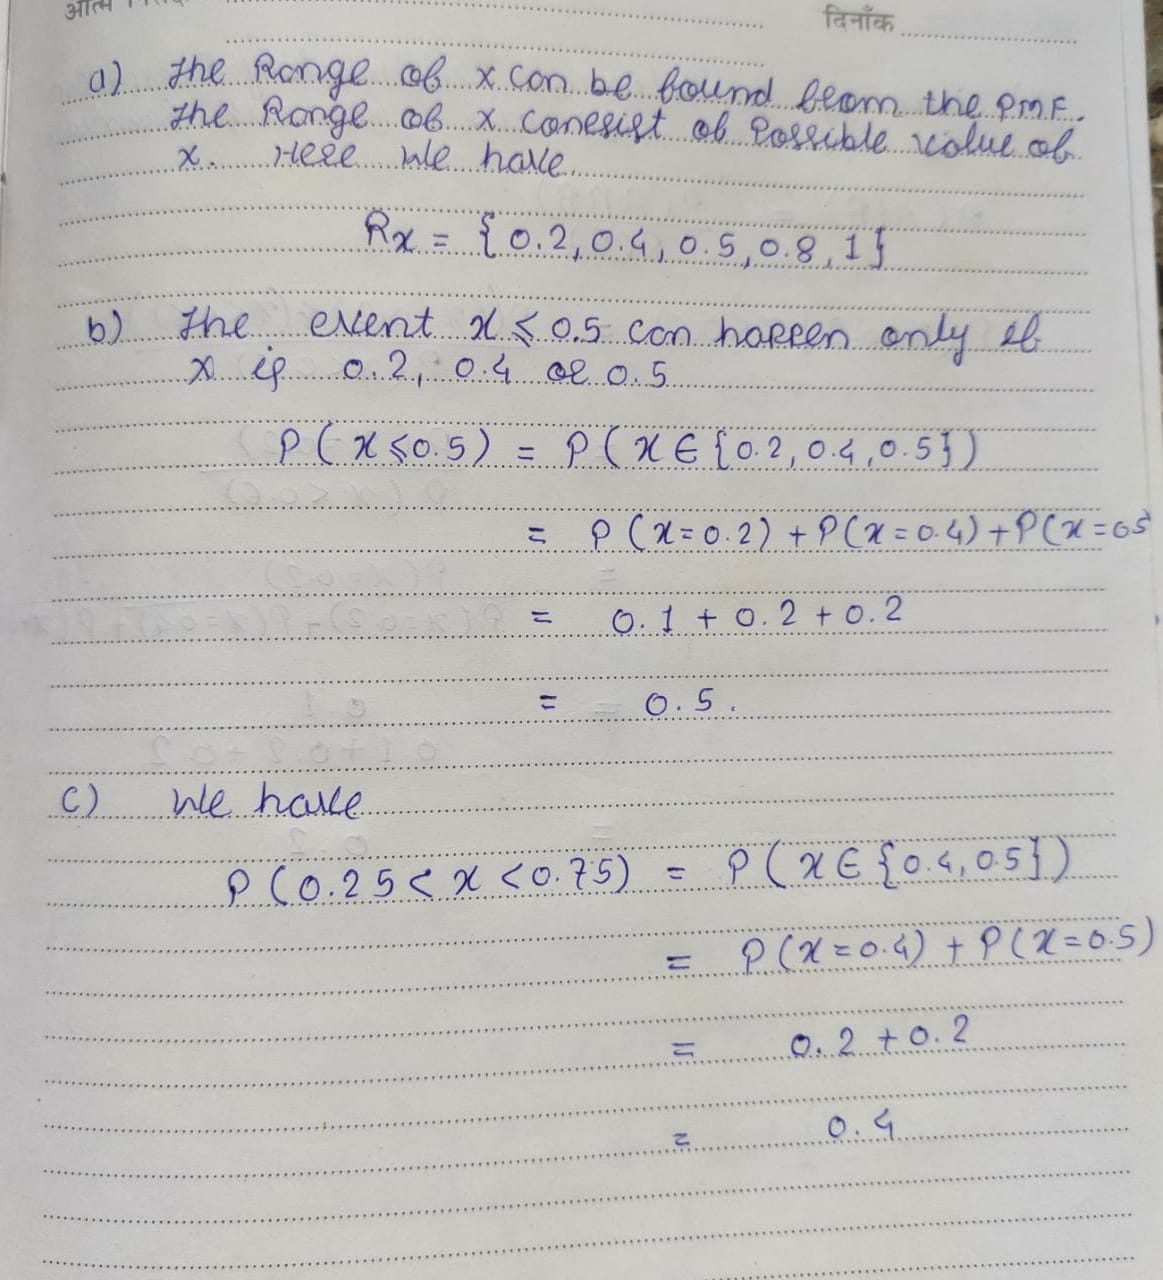 दिनाँक
a) The Range of x can be found from the PMF.
The Range of x conesist of Possible value of
x. Here We have
Rx = {0.2, 0.4, 0.5, 0.8, 1}
b) The event x ≤ 0.5 can happen only if
x is 0.2, 0.4 or 0.5
P(x ≤ 0.5) = P(x ∈ {0.2, 0.4, 0.5})
= P(x=0.2) + P(x=0.4) + P(x=05
= 0.1 + 0.2 + 0.2
= 0.5.
c) We have
P(0.25 < x < 0.75) = P(x ∈ {0.4, 05})
= P(x=0.4) + P(x=0.5)
= 0.2 + 0.2
= 0.4